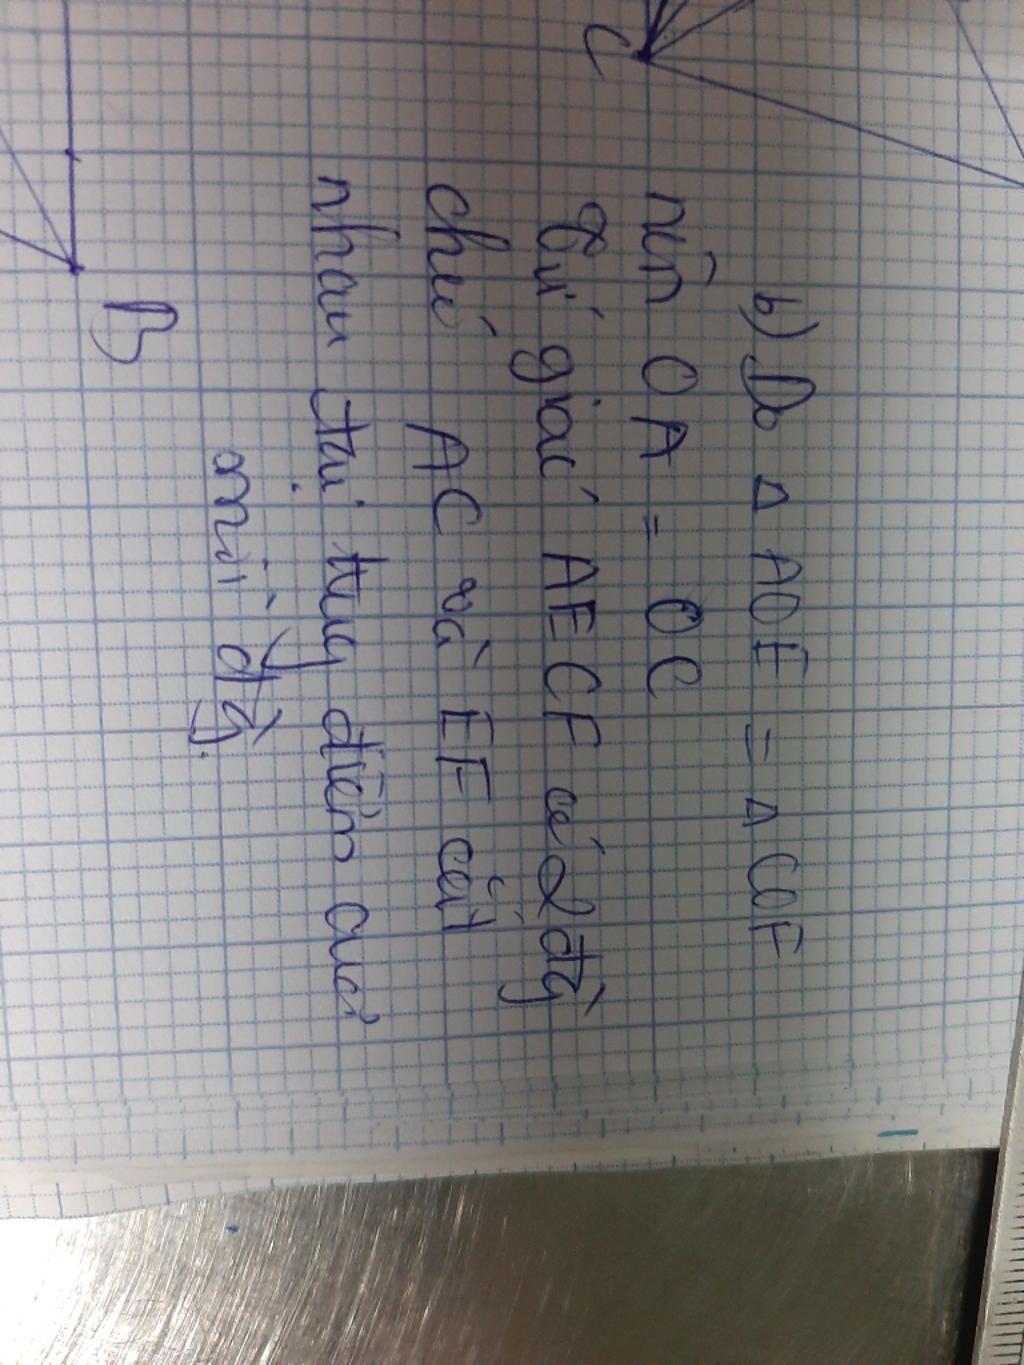 C
b) Do Δ AOE = Δ COF
nên OA = OC
Tứ giác AECF có 2 đg`
chéo AC và EF cắt
nhau tại tru điểm của
mỗi đg`.
B